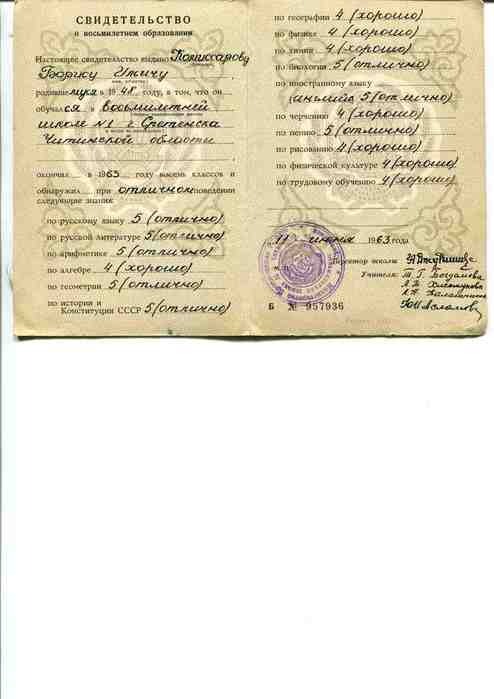 СВИДЕТЕЛЬСТВО
о восьмилетнем образовании
Настоящее свидетельство выдано Комиссарову
Ильичу
родившемуся в 1948 году, в том, что он
обучался в восьмилетней
школе №1 г. Сретенска
Читинской области
окончил в 1963 году восемь классов и
обнаружил при отличном поведении
следующие знания:
по русскому языку 5 (отлично)
по русской литературе 5 (отлично)
по арифметике 5 (отлично)
по алгебре 4 (хорошо)
по геометрии 5 (отлично)
по истории и
Конституции СССР 5 (отлично)
по географии 4 (хорошо)
по физике 4 (хорошо)
по химии 4 (хорошо)
по биологии 5 (отлично)
по иностранному языку
5 (отлично)
по черчению 4 (хорошо)
по пению 5 (отлично)
по рисованию 4 (хорошо)
по физической культуре 4 (хорошо)
по трудовому обучению 4 (хорошо)
11 июня 1963 года
Директор школы
Учителя: Т. Г. Богданова
Б № 957936